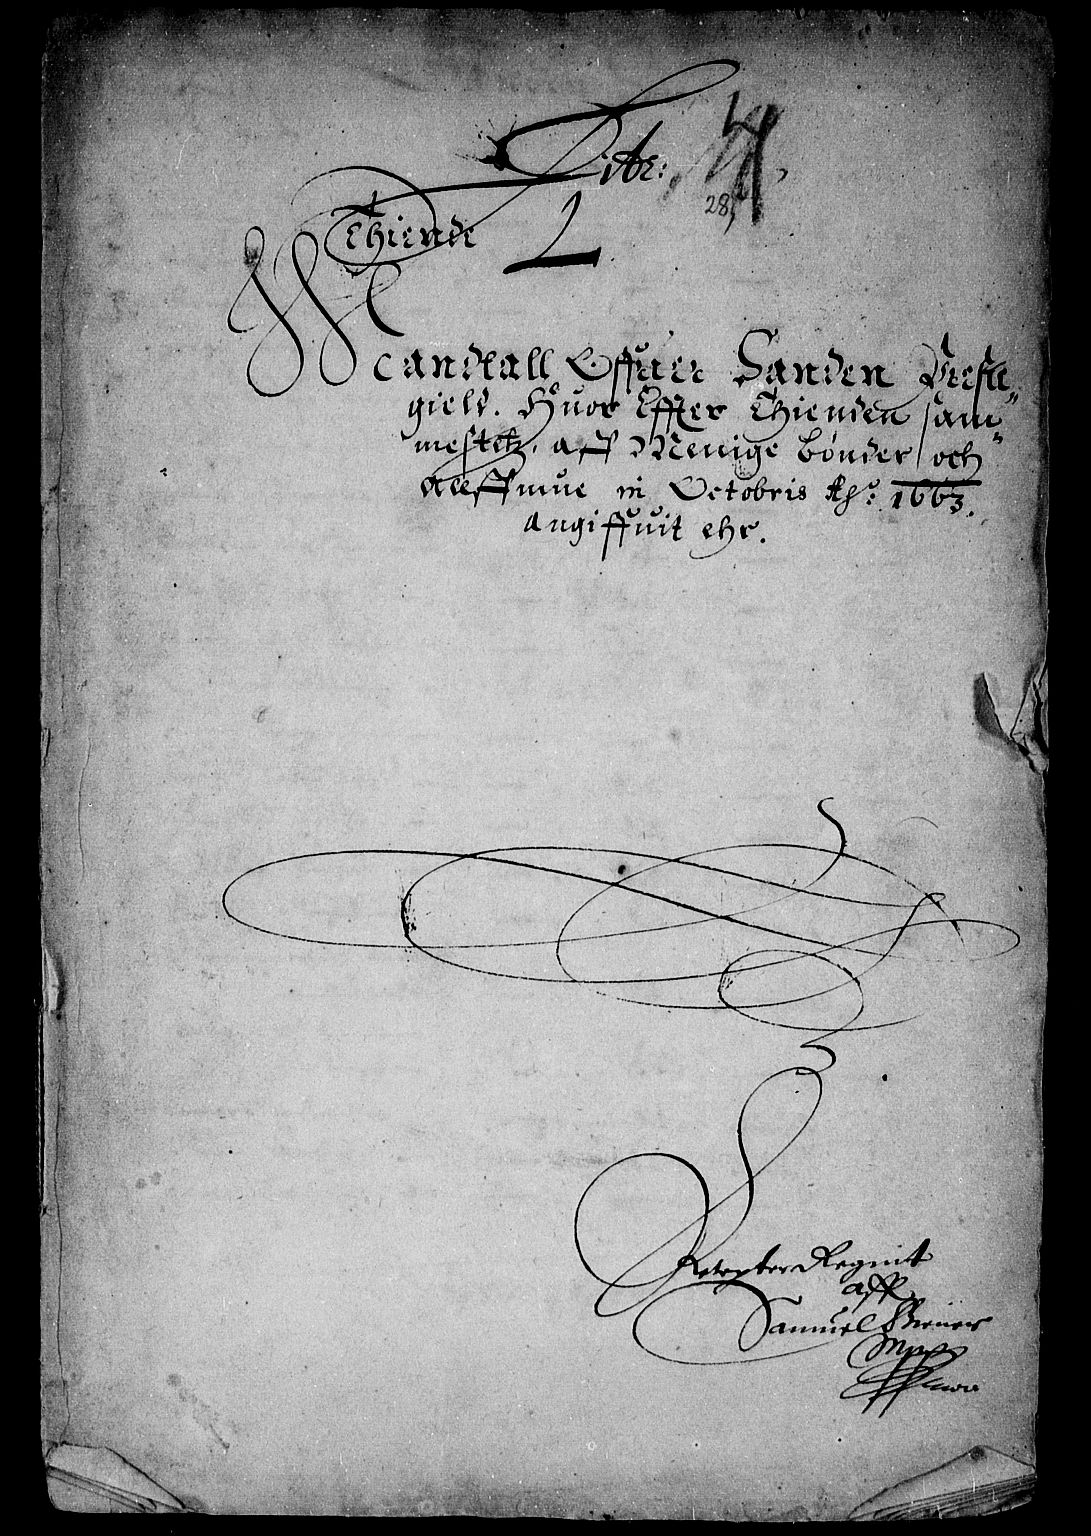 Litr:
28,
L
Thiende
Mandtall Offuer Sanden Preste
gield. Huor Effter Thienden sam„
mestetz. aff Menige bønder och
Allffmue in Octobris Aho: 1663.
angiffuit ehr.
Regnit
aff
Samuel
Mpp